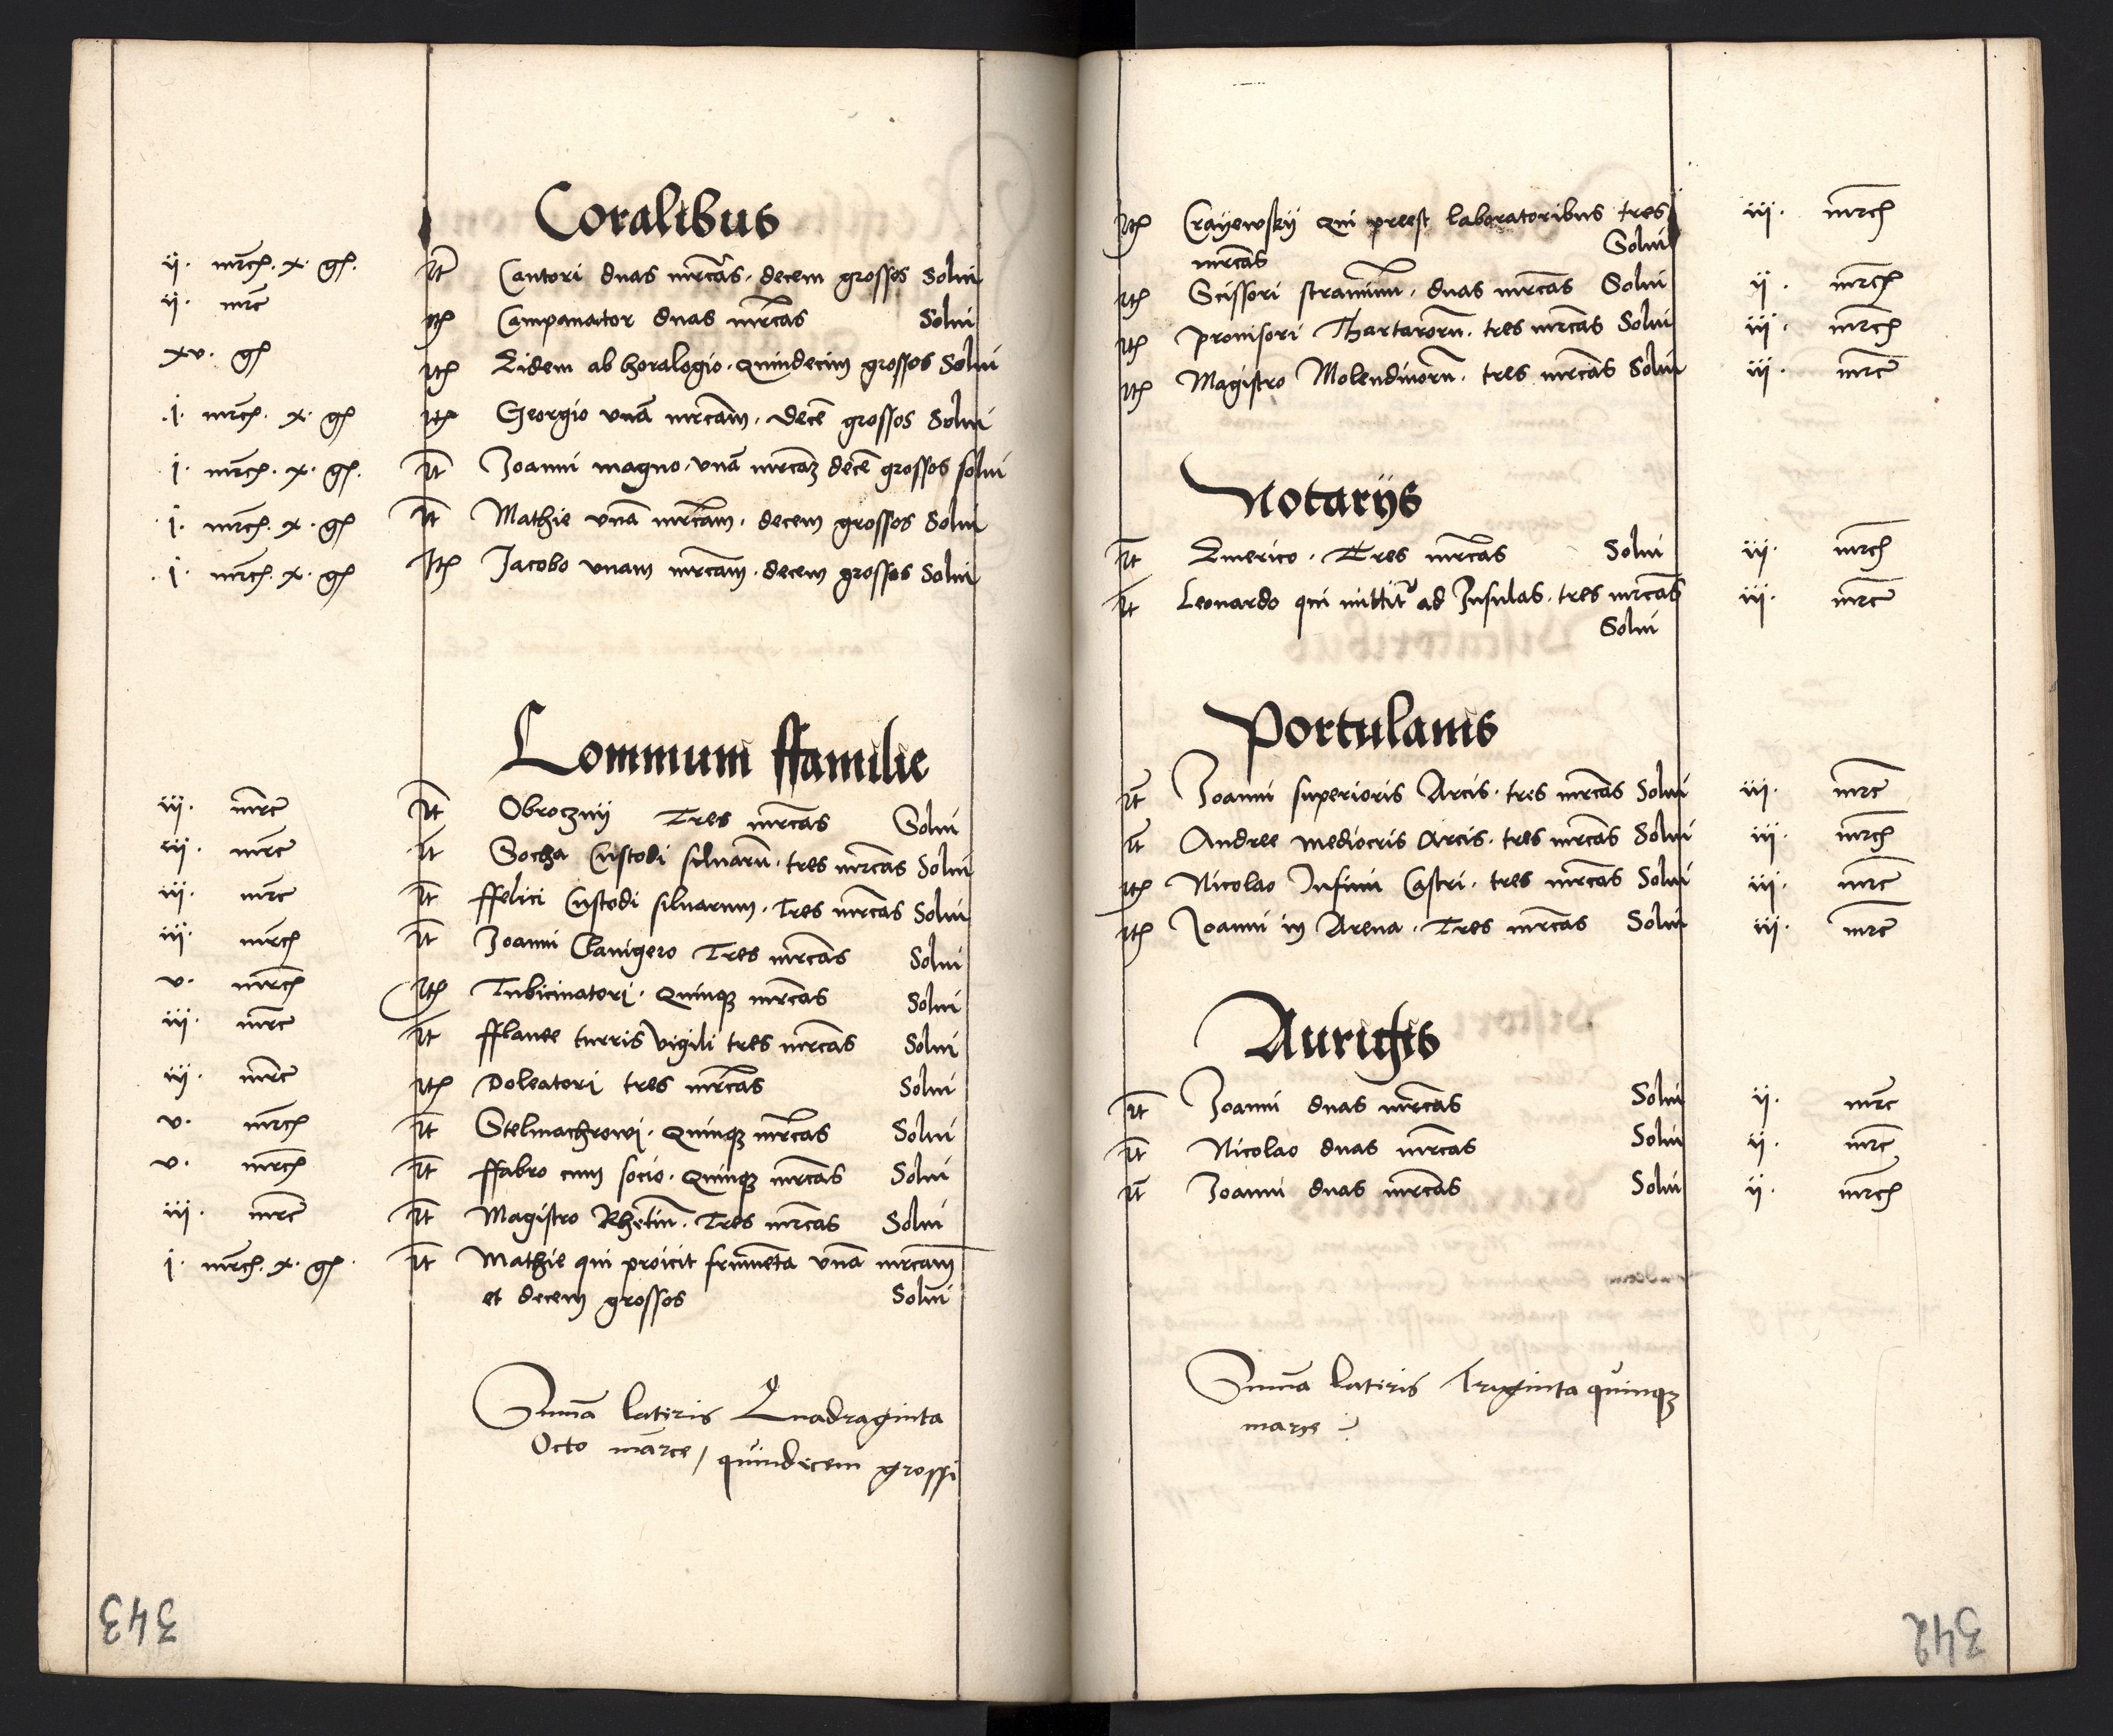 Coralibus
ii. mrcħ. x. gſ. It Cantori duas mrcas. decem grossos Solui
ii. mrc Itħ Campanator duas mrcas Solui
xv. gſ Itħ Eidem ab horalogio. quindecim grossos Solui
.j. mrcħ. x. gſ Itħ Georgio vnā mrcam. decē grossos Solui
j. mrcħ. x. gſ. It Joanni magno. vnā mrcaʒ decē grossos solui
.j. mrcħ. x. gſ It Mathie vnā mrcam. decem grossos Solui
.j. mrcħ. x. gſ Itħ Jacobo vnam mrcam. decem grossos Solui
Commum ffamilie
iii. mrc It Obrocznij Tres mrcas Solui
iii. mrc It Socha Custodi siluarū. tres mrcas Solui
iii. mrc It ffelici Custodi siluarum. Tres mrcas Solui
iii. mrcħ It Joanni Clauigero Tres mrcas Solui
v. mrcħ Itħ Tubicinatori. quinqʒ mrcas Solui
iii. mrc It fflauee turris vigili tres mrcas Solui
iij. mrc Itħ Doleatori tres mrcas Solui
v. mrcħ It Stelmachrowi. quinqʒ mrcas Solui
v. mrcħ It ffabro cum socio. quinqʒ mrcas Solui
iii. mrc It Magistro Rhetiū. Tres mrcas Solui
j. mrcħ. x. gſ. It Mathie qui proicit frumēta vnā mrcam
et decem grossos Solui
Sūma lateris Quadraginta
Octo marce / quindecem grossi
343
Itħ Crayewskij qui preest laboratoribus tres iij. mrcħ
mrcas Solui
Itħ Scissori straminū. duas mrcas Solui ij. mrcħ
Itħ prouisori Thartarorū. tres mrcas Solui iij. mrcħ
Itħ Magistro Molendinorū. tres mrcas Solui iij. mrc
Notarijs
It Emerico. Tres mrcas Solui iij. mrcħ
It Leonardo qui mittitʳ ad Insulas. tres mrcas iij. mrc
Solui
Portulanis
It Joanni superioris Arcis. tres mrcas Solui iij. mrc
It Andree mediocris Arcis. tres mrcas Solui iij. mrcħ
Itħ Nicolao Infimi Castri. tres mrcas Solui iij. mrc
Itħ Joanni in Arena. Tres mrcas Solui iij. mrc
Aurigis
It Joanni duas mrcas Solui ij. mrc
It Nicolao duas mrcas Solui ij. mrc
It Joanni duas mrcas Solui ij. mrcħ
Sūma lateris Triginta quinqʒ
marce
342